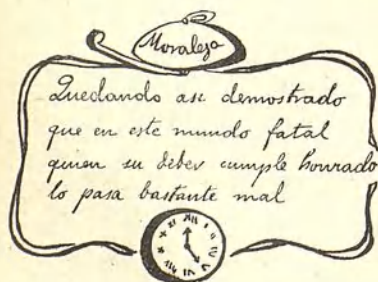 Moraleja
Quedando asi demostrado
que en este mundo fatal
quien su deber cumple honrado
lo pasa bastante mal